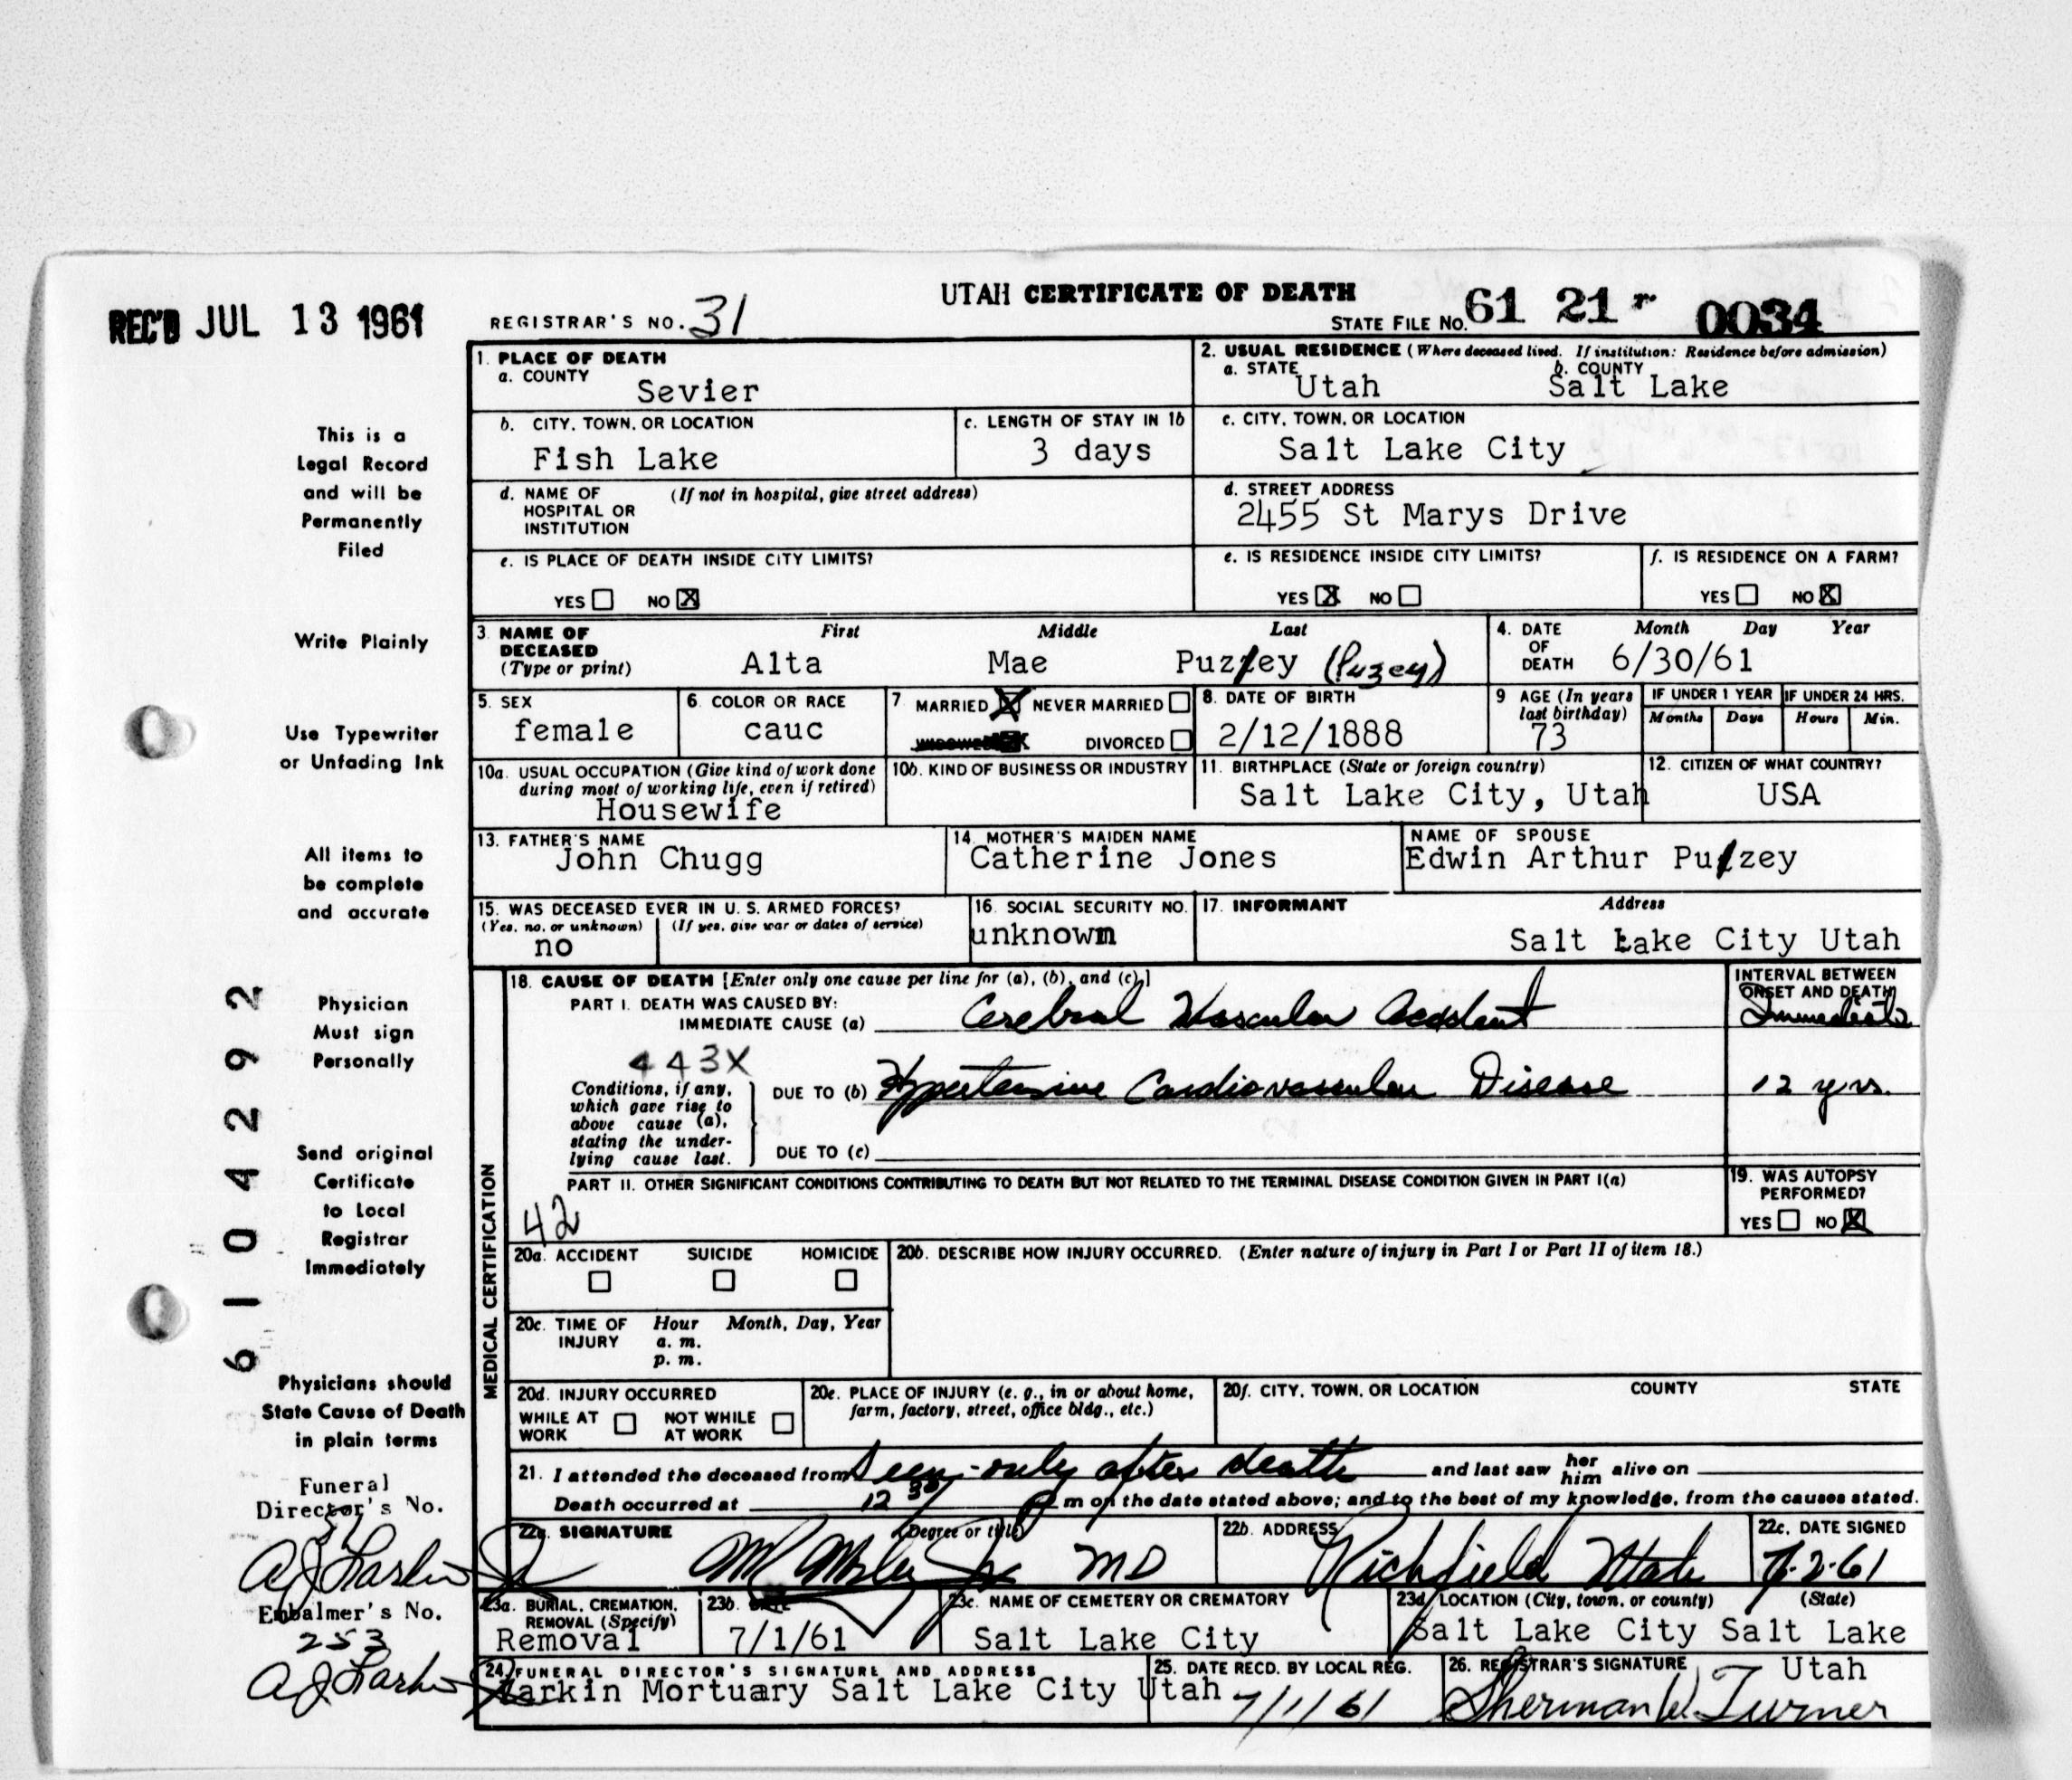 UTAH CERTIFICATE OF DEATH
REC'D JUL 13 1961
REGISTRAR'S NO. 31
STATE FILE NO. 61 21 0034
1. PLACE OF DEATH
a. COUNTY
Sevier
2. USUAL RESIDENCE (Where deceased lived. If institution: Residence before admission)
a. STATE b. COUNTY
Utah Salt Lake
b. CITY, TOWN, OR LOCATION
Fish Lake
c. LENGTH OF STAY IN 1b
3 days
c. CITY, TOWN, OR LOCATION
Salt Lake City
d. NAME OF (If not in hospital, give street address)
HOSPITAL OR
INSTITUTION
d. STREET ADDRESS
2455 St Marys Drive
e. IS PLACE OF DEATH INSIDE CITY LIMITS?
YES NO X
e. IS RESIDENCE INSIDE CITY LIMITS?
YES X NO
f. IS RESIDENCE ON A FARM?
YES NO X
3. NAME OF DECEASED (Type or print)
First Middle Last
Alta Mae Puzzey (Puzey)
4. DATE OF DEATH Month Day Year
6/30/61
5. SEX
female
6. COLOR OR RACE
cauc
7 MARRIED X NEVER MARRIED
WIDOWED DIVORCED
8. DATE OF BIRTH
2/12/1888
9 AGE (In years last birthday)
73
IF UNDER 1 YEAR IF UNDER 24 HRS.
Months Days Hours Min.
10a. USUAL OCCUPATION (Give kind of work done
during most of working life, even if retired)
Housewife
10b. KIND OF BUSINESS OR INDUSTRY
11. BIRTHPLACE (State or foreign country)
Salt Lake City, Utah
12. CITIZEN OF WHAT COUNTRY?
USA
13. FATHER'S NAME
John Chugg
14. MOTHER'S MAIDEN NAME
Catherine Jones
NAME OF SPOUSE
Edwin Arthur Puzzey
15. WAS DECEASED EVER IN U. S. ARMED FORCES?
(Yes, no, or unknown) (If yes, give war or dates of service)
no
16. SOCIAL SECURITY NO.
unknown
17. INFORMANT Address
Salt Lake City Utah
MEDICAL CERTIFICATION
18. CAUSE OF DEATH [Enter only one cause per line for (a), (b), and (c).]
PART I. DEATH WAS CAUSED BY:
IMMEDIATE CAUSE (a) Cerebral Vascular Accident
INTERVAL BETWEEN
ONSET AND DEATH
Immediate
443X
Conditions, if any,
which gave rise to
above cause (a),
stating the under-
lying cause last.
DUE TO (b) Hypertensive Cardiovascular Disease 12 yrs.
DUE TO (c)
PART II. OTHER SIGNIFICANT CONDITIONS CONTRIBUTING TO DEATH BUT NOT RELATED TO THE TERMINAL DISEASE CONDITION GIVEN IN PART I(a)
42
19. WAS AUTOPSY
PERFORMED?
YES NO X
20a. ACCIDENT SUICIDE HOMICIDE
20b. DESCRIBE HOW INJURY OCCURRED. (Enter nature of injury in Part I or Part II of item 18.)
20c. TIME OF INJURY Hour Month, Day, Year
a. m.
p. m.
20d. INJURY OCCURRED
WHILE AT WORK NOT WHILE AT WORK
20e. PLACE OF INJURY (e. g., in or about home,
farm, factory, street, office bldg., etc.)
20f. CITY, TOWN, OR LOCATION COUNTY STATE
21. I attended the deceased from Seen only after death and last saw her him alive on
Death occurred at 12 30 P m on the date stated above; and to the best of my knowledge, from the causes stated.
22a. SIGNATURE (Degree or title)
MD
22b. ADDRESS
Richfield Utah
22c. DATE SIGNED
7-2-61
23a. BURIAL, CREMATION,
REMOVAL (Specify)
Removal
23b. DATE
7/1/61
23c. NAME OF CEMETERY OR CREMATORY
Salt Lake City
23d. LOCATION (City, town, or county) (State)
Salt Lake City Salt Lake
Utah
24. FUNERAL DIRECTOR'S SIGNATURE AND ADDRESS
Larkin Mortuary Salt Lake City Utah
25. DATE RECD. BY LOCAL REG.
7/1/61
26. REGISTRAR'S SIGNATURE
Sherman W. Turner
This is a
Legal Record
and will be
Permanently
Filed
Write Plainly
Use Typewriter
or Unfading Ink
All items to
be complete
and accurate
Physician
Must sign
Personally
Send original
Certificate
to Local
Registrar
Immediately
Physicians should
State Cause of Death
in plain terms
61 04292
Funeral
Director's No.
A J Larkin Jr
Embalmer's No.
253
A J Larkin Jr